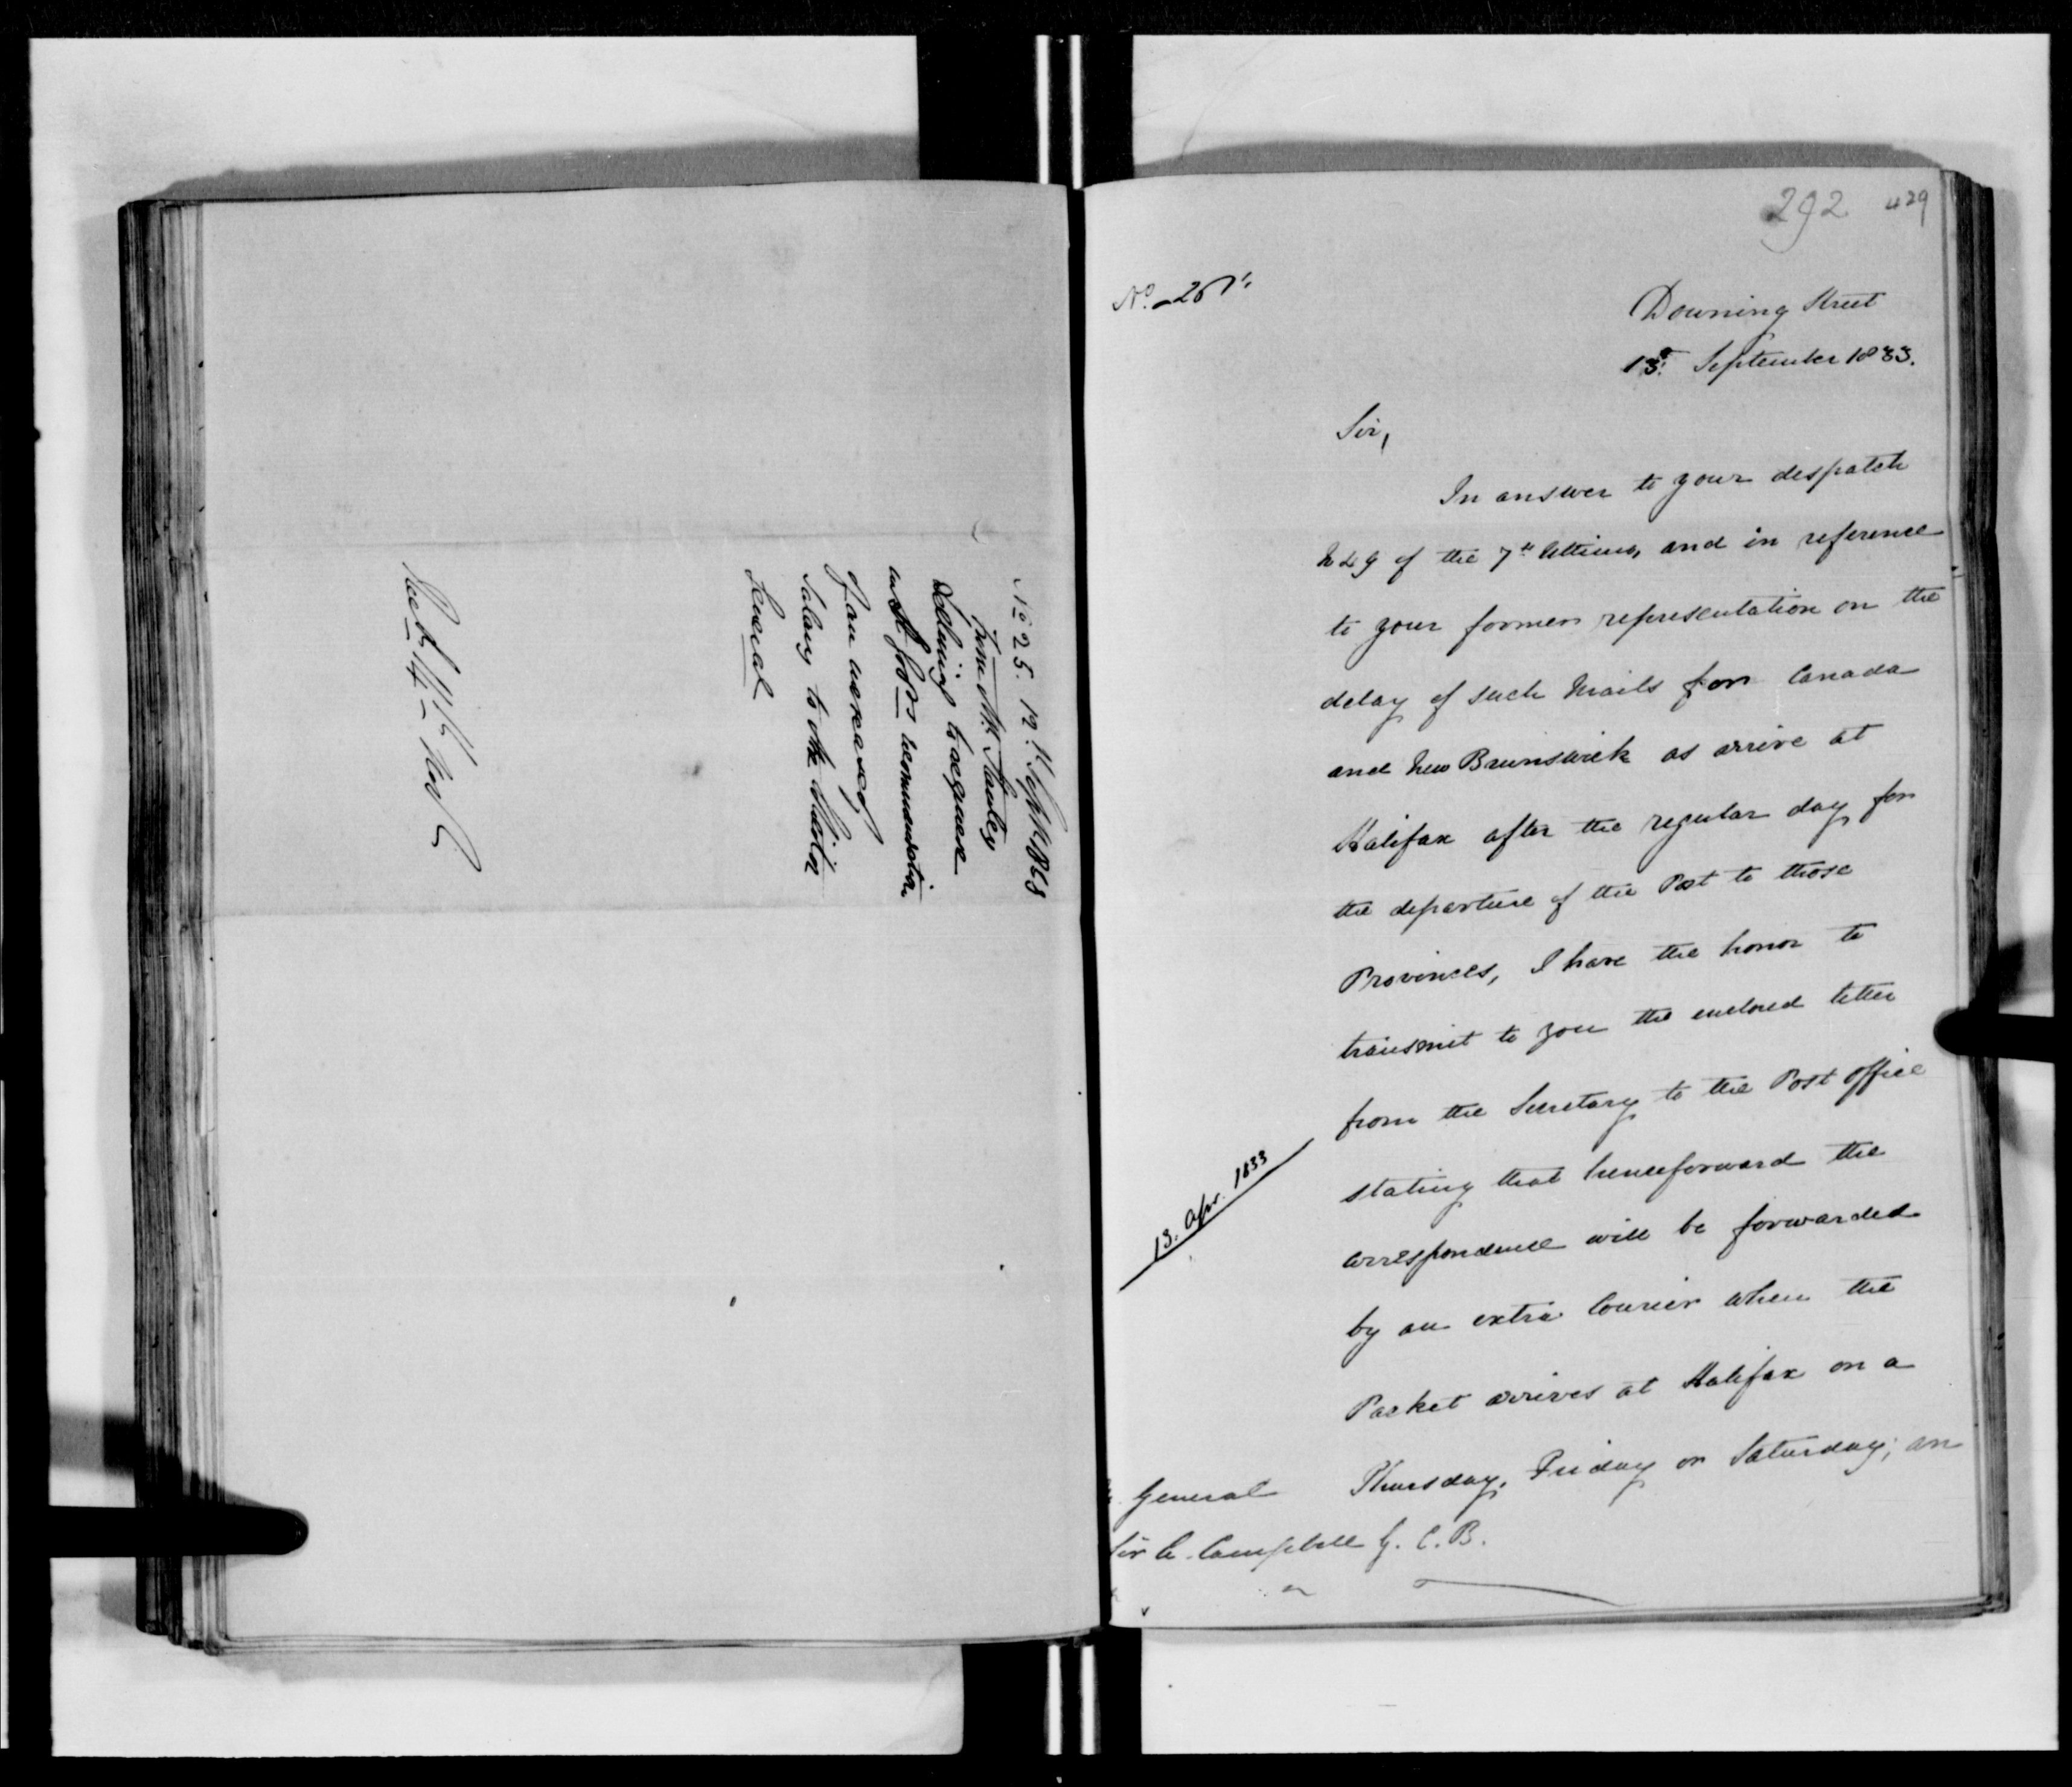 No 25. 12th Sept 1833
From Mr Stanley
declining to acquiesce
in Sir John's recommendation
of an increased
salary to the Solicitor
General
Recd 14th Nov
292 429
No. 26.
Downing Street
13th September 1833.
Sir,
In answer to your despatch
No 49 of the 7th Ultimo, and in reference
to your former representation on the
delay of such Mails for Canada
and New Brunswick as arrive at
Halifax after the regular day for
the departure of the Post to those
Provinces, I have the honor to
transmit to you the enclosed letter
13. Apr. 1833
from the Secretary to the Post office
stating that henceforward the
correspondence will be forwarded
by an extra Courier when the
Packet arrives at Halifax on a
Thursday, Friday or Saturday; an
General
Sir C. Campbell G. C. B.